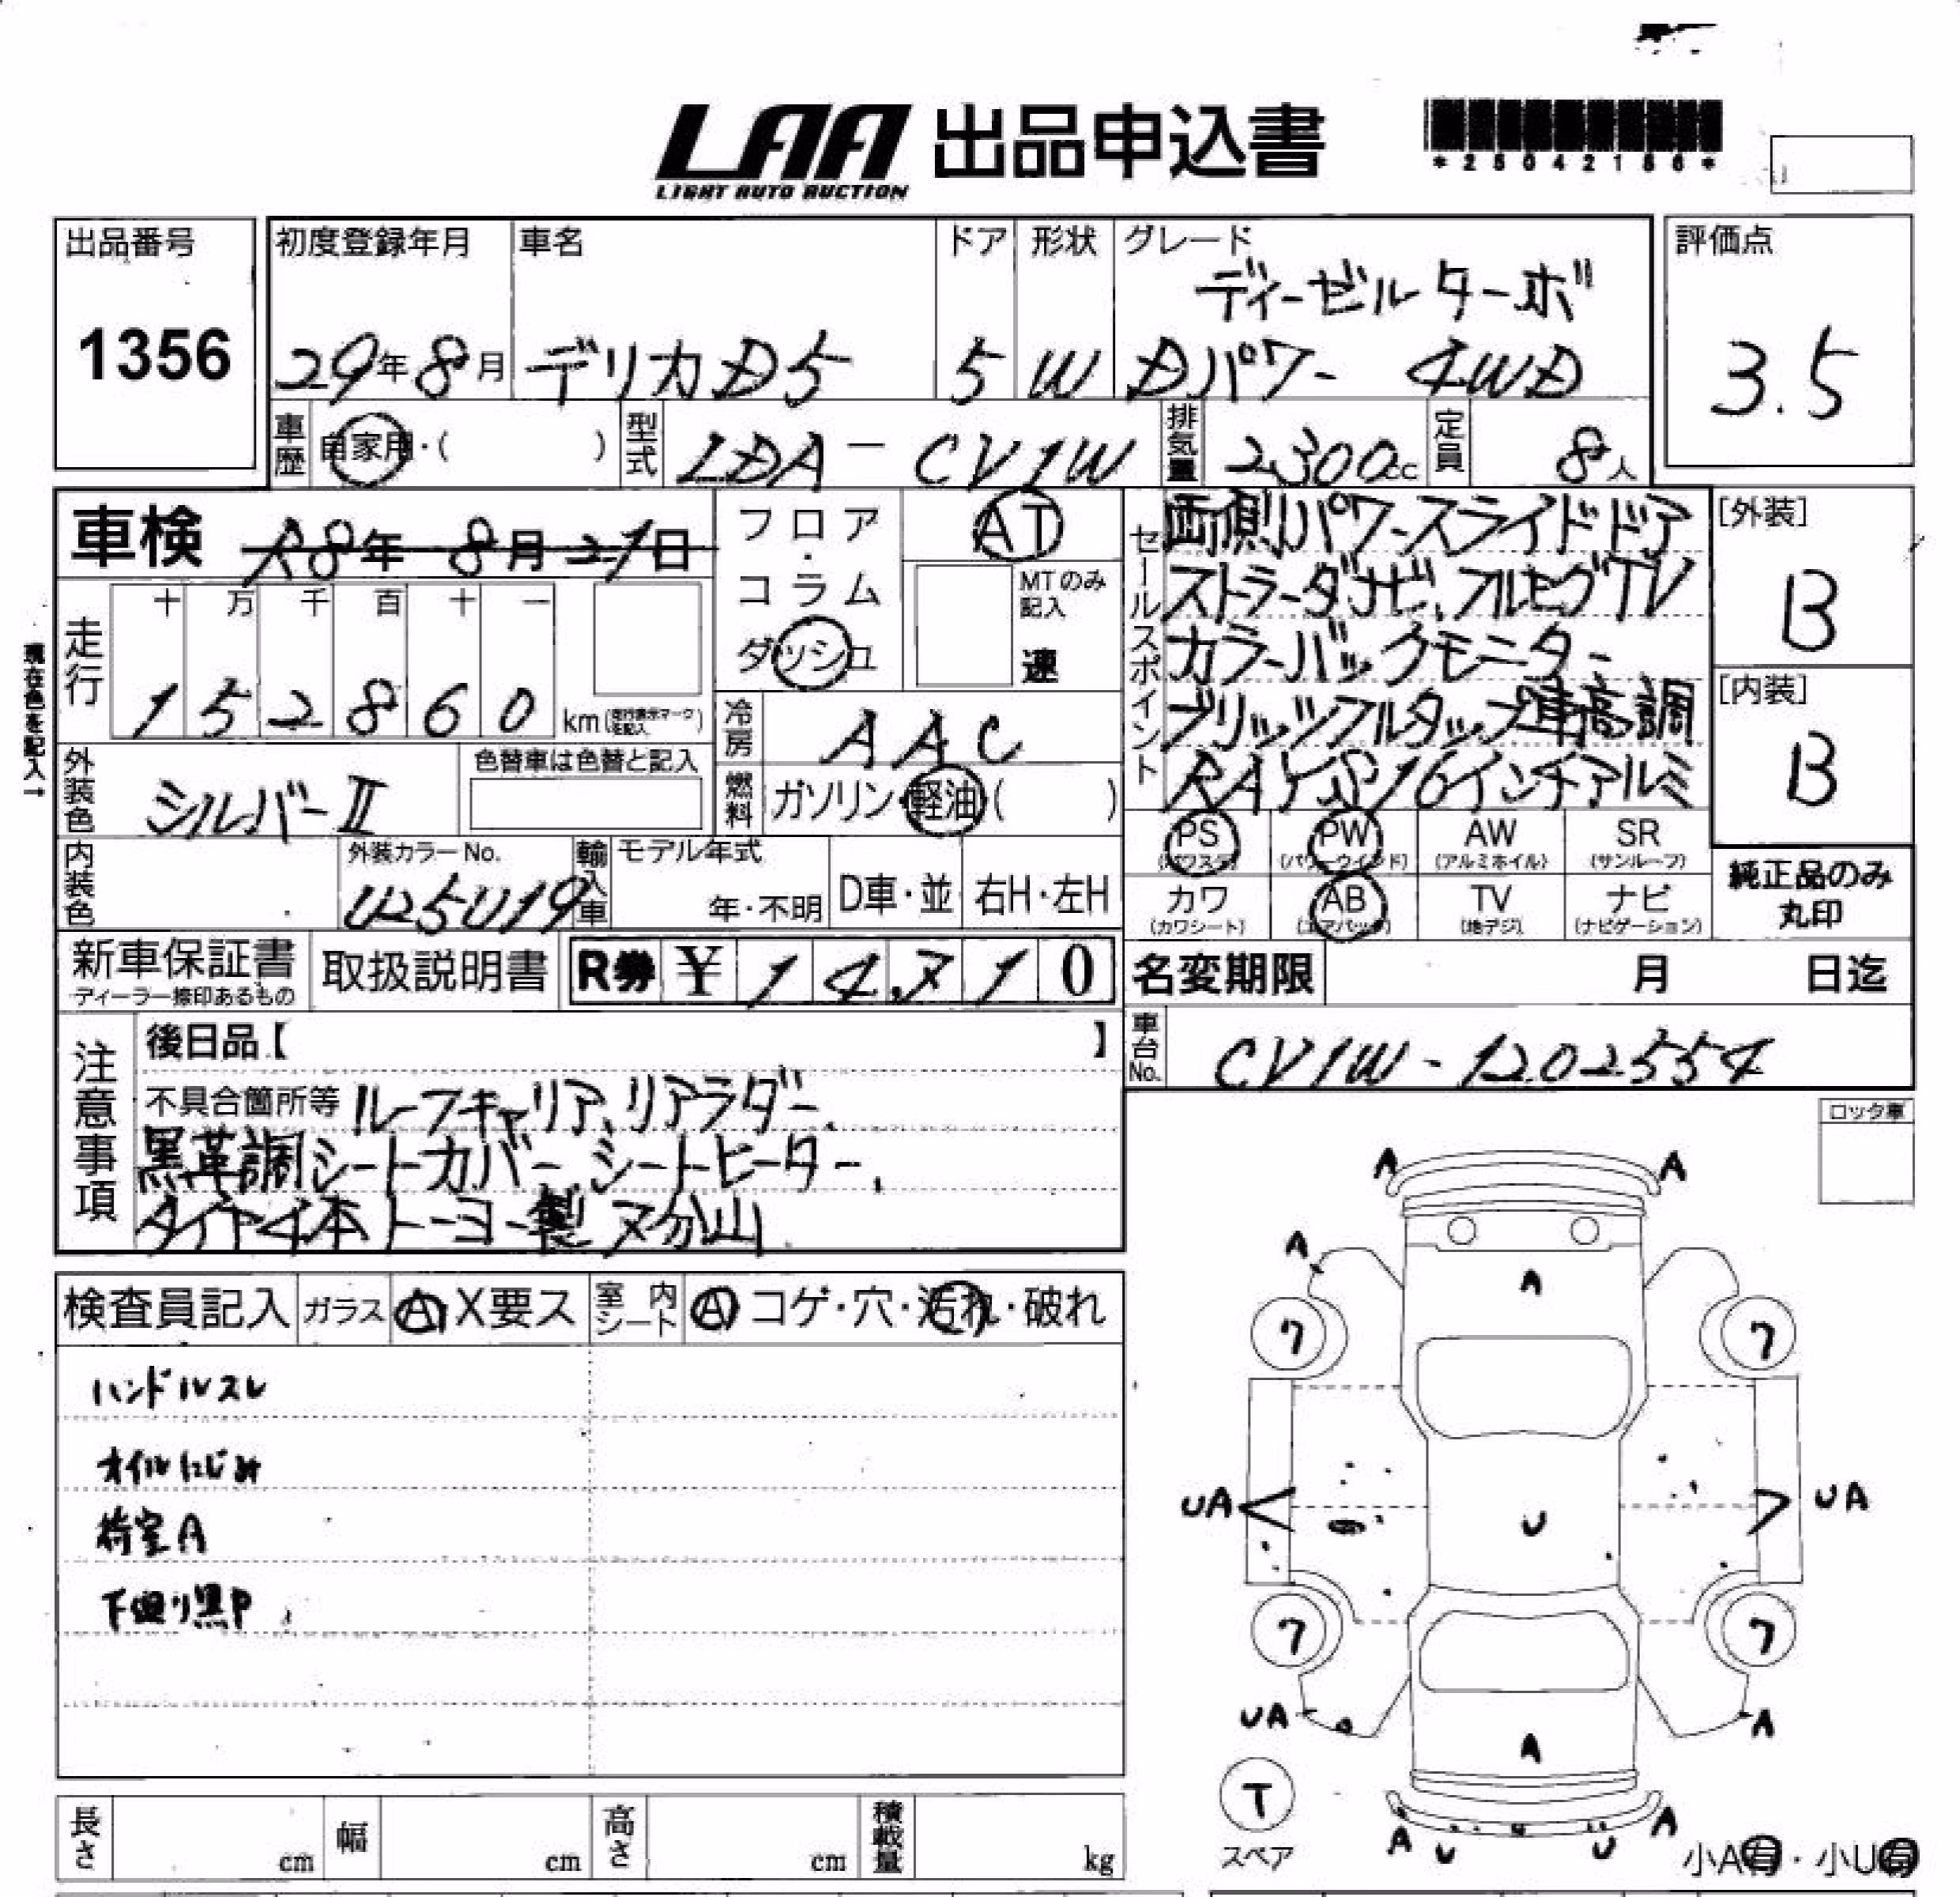 LAA 出品申込書
LIGHT AUTO AUCTION
*25042186*
出品番号
1356
初度登録年月
29年8月
車名
デリカD5
ドア
5
形状
W
グレード
ディーゼルターボ
Dパワー 4WD
評価点
3.5
車歴 自家用・( )
型式 LDA-CV1W
排気量 2300cc
定員 8人
車検 R8年 8月 21日
フロア・コラム ダッシュ
AT
MTのみ記入
速
走行
十 万 千 百 十 一
152860 km(走行表示マークを記入)
現在色を記入→
外装色 シルバーⅡ
色替車は色替と記入
冷房 AAC
燃料 ガソリン・軽油( )
内装色
外装カラーNo.
U25U19
輸入車
モデル年式
年・不明
D車・並
右H・左H
新車保証書
ディーラー捺印あるもの
取扱説明書
R券 ¥ 14,710
セールスポイント
両側パワースライドドア
ストラーダナビ、フルセグTV
カラーバックモニター
ブリッツフルタップ車高調
RAYS16インチアルミ
[外装]
B
[内装]
B
PS
(パワステ)
PW
(パワーウインド)
AW
(アルミホイル)
SR
(サンルーフ)
カワ
(カワシート)
AB
(エアバッグ)
TV
(地デジ)
ナビ
(ナビゲーション)
純正品のみ
丸印
名変期限 月 日迄
車台No. CV1W-1202554
注意事項
後日品【 】
不具合箇所等 ルーフキャリア、リアラダー、
黒革調シートカバー、シートヒーター、
タイヤ4本トーヨー製ヌ分山
検査員記入
ガラス A・X要ス
室内シート A コゲ・穴・汚れ・破れ
ハンドルスレ
オイルにじみ
荷室A
下廻り黒P
ロック車
A A
A
A
7 7
UA U UA
7 7
UA A
A
T
スペア
A U U A
小A有・小U有
長さ cm
幅 cm
高さ cm
積載量 kg